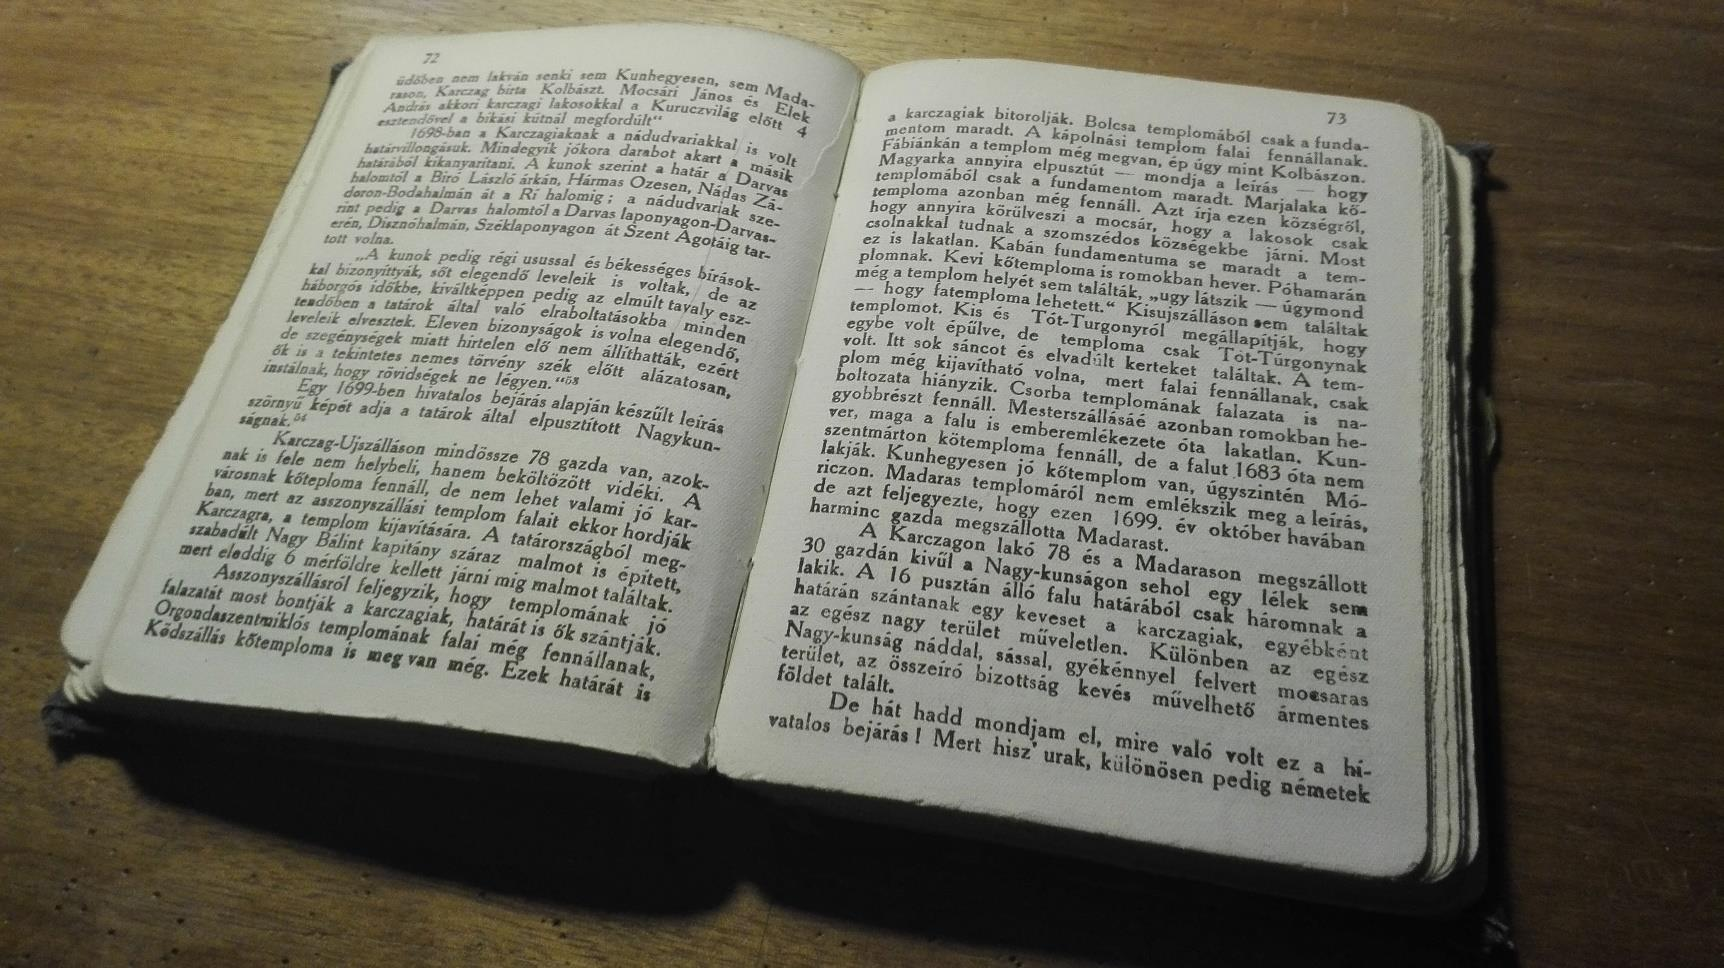 72
üdőben nem lakván senki sem Kunhegyesen, sem Mada-
rason, Karczag birta Kolbászt. Mocsári János és Elek
András akkori karczagi lakosokkal a Kuruczvilág előtt 4
esztendővel a bikási kútnál megfordúlt“
1698-ban a Karczagiaknak a nádudvariakkal is volt
határvillongásuk. Mindegyik jókora darabot akart a másik
határából kikanyarítani. A kunok szerint a határ a Darvas
halomtól a Biró László árkán, Hármas Ozesen, Nádas Zá-
doron-Bodahalmán át a Ri halomig; a nádudvariak sze-
rint pedig a Darvas halomtól a Darvas laponyagon-Darvas-
erén, Disznóhalmán, Széklaponyagon át Szent Agotáig tar-
tott volna.
„A kunok pedig régi usussal és békességes bírások-
kal bizonyíttyák, sőt elegendő leveleik is voltak, de az
háborgós időkbe, kiváltképpen pedig az elmúlt tavaly esz-
tendőben a tatárok által való elraboltatásokba minden
leveleik elvesztek. Eleven bizonyságok is volna elegendő,
de szegénységek miatt hirtelen elő nem állíthatták, ezért
ők is a tekintetes nemes törvény szék előtt alázatosan,
instálnak, hogy rövidségek ne légyen.“⁵³
Egy 1699-ben hivatalos bejárás alapján készűlt leírás
szörnyű képét adja a tatárok által elpusztított Nagykun-
ságnak.⁵⁴
Karczag-Ujszálláson mindössze 78 gazda van, azok-
nak is fele nem helybeli, hanem beköltözött vidéki. A
városnak kőteploma fennáll, de nem lehet valami jó kar-
ban, mert az asszonyszállási templom falait ekkor hordják
Karczagra, a templom kijavítására. A tatárországból meg-
szabadúlt Nagy Bálint kapitány száraz malmot is épített,
mert eleddig 6 mérföldre kellett járni mig malmot találtak.
Asszonyszállásról feljegyzik, hogy templomának jó
falazatát most bontják a karczagiak, határát is ők szántják.
Orgondaszentmiklós templomának falai még fennállanak,
Kődszállás kőtemploma is meg van még. Ezek határát is
73
a karczagiak bitorolják. Bolcsa templomából csak a funda-
mentom maradt. A kápolnási templom falai fennállanak.
Fábiánkán a templom még megvan, ép úgy mint Kolbászon.
Magyarka annyira elpusztút — mondja a leírás — hogy
templomából csak a fundamentom maradt. Marjalaka kő-
temploma azonban még fennáll. Azt írja ezen községről,
hogy annyira körülveszi a mocsár, hogy a lakosok csak
csolnakkal tudnak a szomszédos községekbe járni. Most
ez is lakatlan. Kabán fundamentuma se maradt a tem-
plomnak. Kevi kőtemploma is romokban hever. Póhamarán
még a templom helyét sem találták, „ugy látszik — úgymond
— hogy fatemploma lehetett.“ Kisujszálláson sem találtak
templomot. Kis és Tót-Turgonyról megállapítják, hogy
egybe volt épűlve, de temploma csak Tót-Túrgonynak
volt. Itt sok sáncot és elvadúlt kerteket találtak. A tem-
plom még kijavítható volna, mert falai fennállanak, csak
boltozata hiányzik. Csorba templomának falazata is na-
gyobbrészt fennáll. Mesterszállásáé azonban romokban he-
ver, maga a falu is emberemlékezete óta lakatlan. Kun-
szentmárton kötemploma fennáll, de a falut 1683 óta nem
lakják. Kunhegyesen jó kőtemplom van, úgyszintén Mó-
riczon. Madaras templomáról nem emlékszik meg a leírás,
de azt feljegyezte, hogy ezen 1699. év október havában
harminc gazda megszállotta Madarast.
A Karczagon lakó 78 és a Madarason megszállott
30 gazdán kivűl a Nagy-kunságon sehol egy lélek sem
lakik. A 16 pusztán álló falu határából csak háromnak a
határán szántanak egy keveset a karczagiak, egyébként
az egész nagy terület műveletlen. Különben az egész
Nagy-kunság náddal, sással, gyékénnyel felvert mocsaras
terület, az összeíró bizottság kevés művelhető ármentes
földet talált.
De hát hadd mondjam el, mire való volt ez a hi-
vatalos bejárás! Mert hisz’ urak, különösen pedig németek